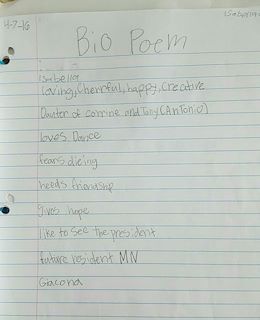 4-7-16
Isabella
Bio Poem
Isabella
loving, Cherrful, happy, Creative
Dauter of corrine and Tony (Antonio)
loves Dance
fears dieing
needs friendship
gives hope
like to see the president
future resident MN
Giacona